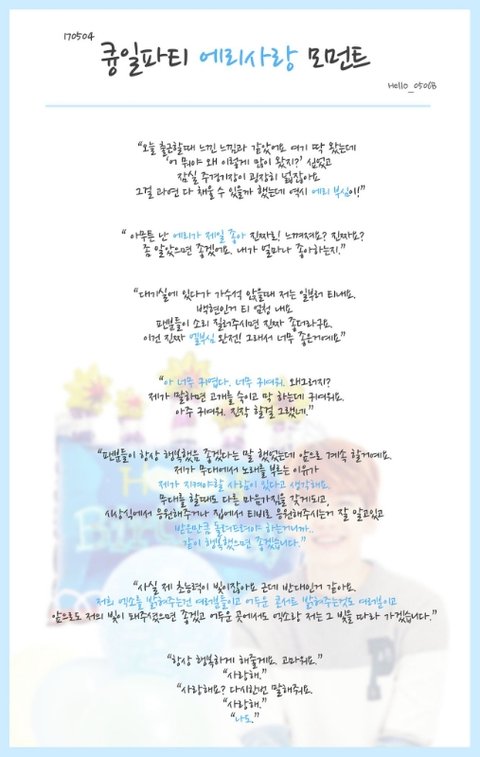 170504
큥일파티 에리사랑 모먼트
Hello_0506B
"오늘 출근할때 느낀 느낌과 같았어요 여기 딱 왔는데
'어 뭐야 왜 이렇게 많이 왔지?' 싶었고
잠실 주경기장이 굉장히 넓잖아요
그걸 과연 다 채울 수 있을까 했는데 역시 에리 부심이!"
" 아무튼 난 에리가 제일 좋아 진짜로! 느껴져요? 진짜요?
좀 알았으면 좋겠어요. 내가 얼마나 좋아하는지."
"대기실에 있다가 가수석 앉을때 저는 일부러 티내요.
백현인거 티 엄청 내요
팬분들이 소리 질러주시면 진짜 좋더라구요.
이건 진짜 엘부심 완전! 그래서 너무 좋은거예요"
"아 너무 귀엽다. 너무 귀여워. 왜그러지?
제가 말하면 고개를 숙이고 막 하는데 귀여워요.
아주 귀여워. 진작 할걸 그랬네."
"팬분들이 항상 행복했음 좋겠다는 말 했었는데 앞으로 계속 할거예요.
제가 무대에서 노래를 부르는 이유가
제가 지켜야할 사람이 있다고 생각해요.
무대를 할때도 다른 마음가짐을 갖게되고,
시상식에서 응원해주거나 집에서 티비로 응원해주시는거 잘 알고있고
받은만큼 돌려드려야 하는거니까..
같이 행복했으면 좋겠습니다."
"사실 제 초능력이 빛이잖아요 근데 반대인거 같아요.
저희 엑소를 밝혀주는건 여러분들이고 어두운 콘서트 밝혀주는것도 여러분이고
앞으로도 저의 빛이 돼주셨으면 좋겠고 어두운 곳에서도 엑소랑 저는 그 빛을 따라 가겠습니다."
"항상 행복하게 해줄게요. 고마워요."
"사랑해."
"사랑해요? 다시한번 말해줘요.
"사랑해."
"나도."